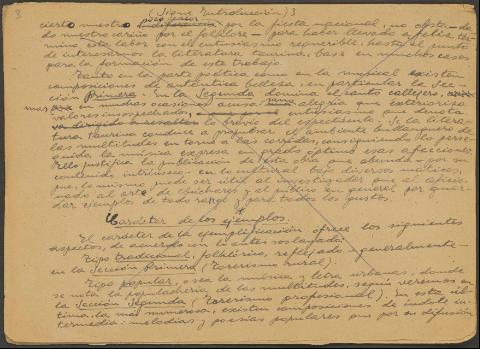 3 (Sigue Introducción) 3
poco fervor
cierto nuestro por la fiesta nacional, no obstan-
do nuestro cariño por el folklore - para haber llevado a feliz tér-
mino esta labor con el entusiasmo requerible, hasta el punto
de interesarnos la literatura taurina, base en muchos casos
para la formación de este trabajo.
Tanto en la parte poética como en la musical existen
composiciones de auténtica belleza, en particular la Sec-
ción Primera. En la Segunda domina el canto callejero,
mas en muchas ocasiones acusa una alegría que exterioriza
valores insospechados, entusiasmo que denota
lo bravío del espectáculo. Si la litera-
tura taurina conduce a profundizar el ambiente bullanguero de
las multitudes en torno a las corridas, consiguiendo lo perse-
guido, la música expresa en grado óptimo esas afecciones.
Ello justifica la publicación de esta obra que abunda - por su
contenido intrínseco - en lo cultural bajo diversos matices;
que, lo mismo puede ser útil al investigador que al aficio-
nado al arte de Chicheros y al público en general por guar-
dar ejemplos de todo rango y para todos los gustos.
Carácter de los ejemplos.
El carácter de la ejemplificación ofrece los siguientes
aspectos, de acuerdo con lo antes soslayado:
Tipo tradicional, folklórico, reflejado - generalmente -
en la Sección Primera (Torerismo rural).
Tipo popular, o sea la música y letra urbanas, donde
se nota la populachería de las multitudes, según veremos en
la Sección Segunda (Torerismo profesional). En esta úl-
tima, la más numerosa, existen composiciones de índole in-
termedia: melodías y poesías populares que por su difusión